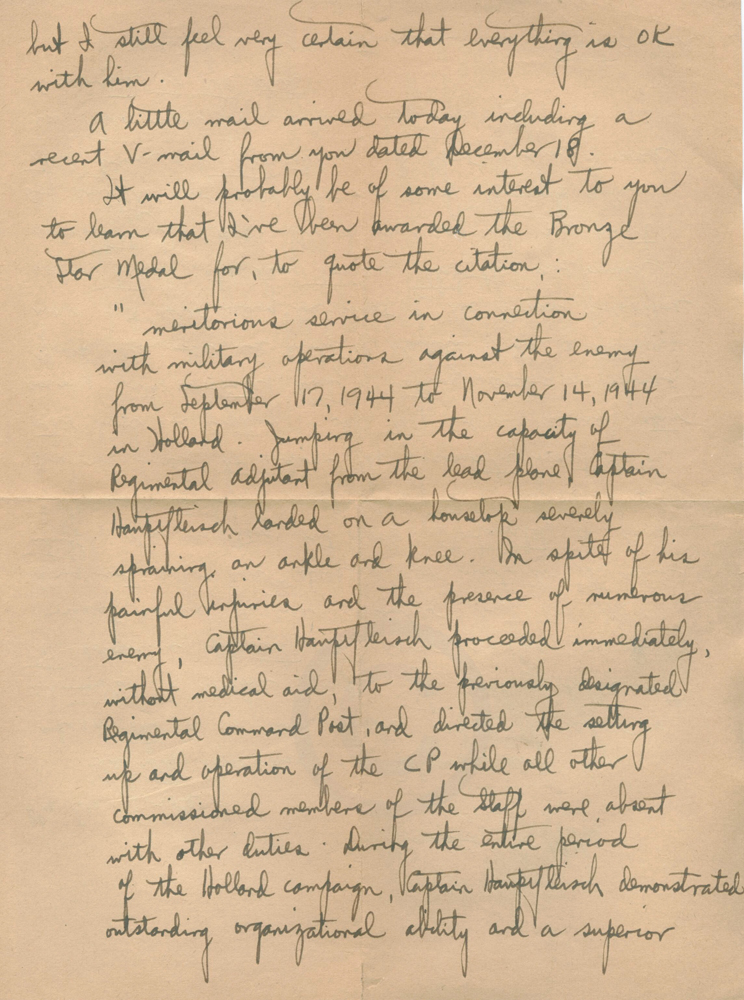 but I still feel very certain that everything is OK
with him.
A little mail arrived today including a
recent V-mail from you dated December 18.
It will probably be of some interest to you
to learn that I've been awarded the Bronze
Star Medal for, to quote the citation, :
" meritorious service in connection
with military operations against the enemy
from September 17, 1944 to November 14, 1944
in Holland. Jumping in the capacity of
Regimental Adjutant from the lead plane, Captain
Haupfleisch landed on a housetop severely
spraining an ankle and knee. In spite of his
painful injuries and the presence of numerous
enemy, Captain Haupfleisch proceeded immediately,
without medical aid, to the previously designated
Regimental Command Post, and directed the setting
up and operation of the CP while all other
commissioned members of the Staff were absent
with other duties. During the entire period
of the Holland campaign, Captain Haupfleisch demonstrated
outstanding organizational ability and a superior